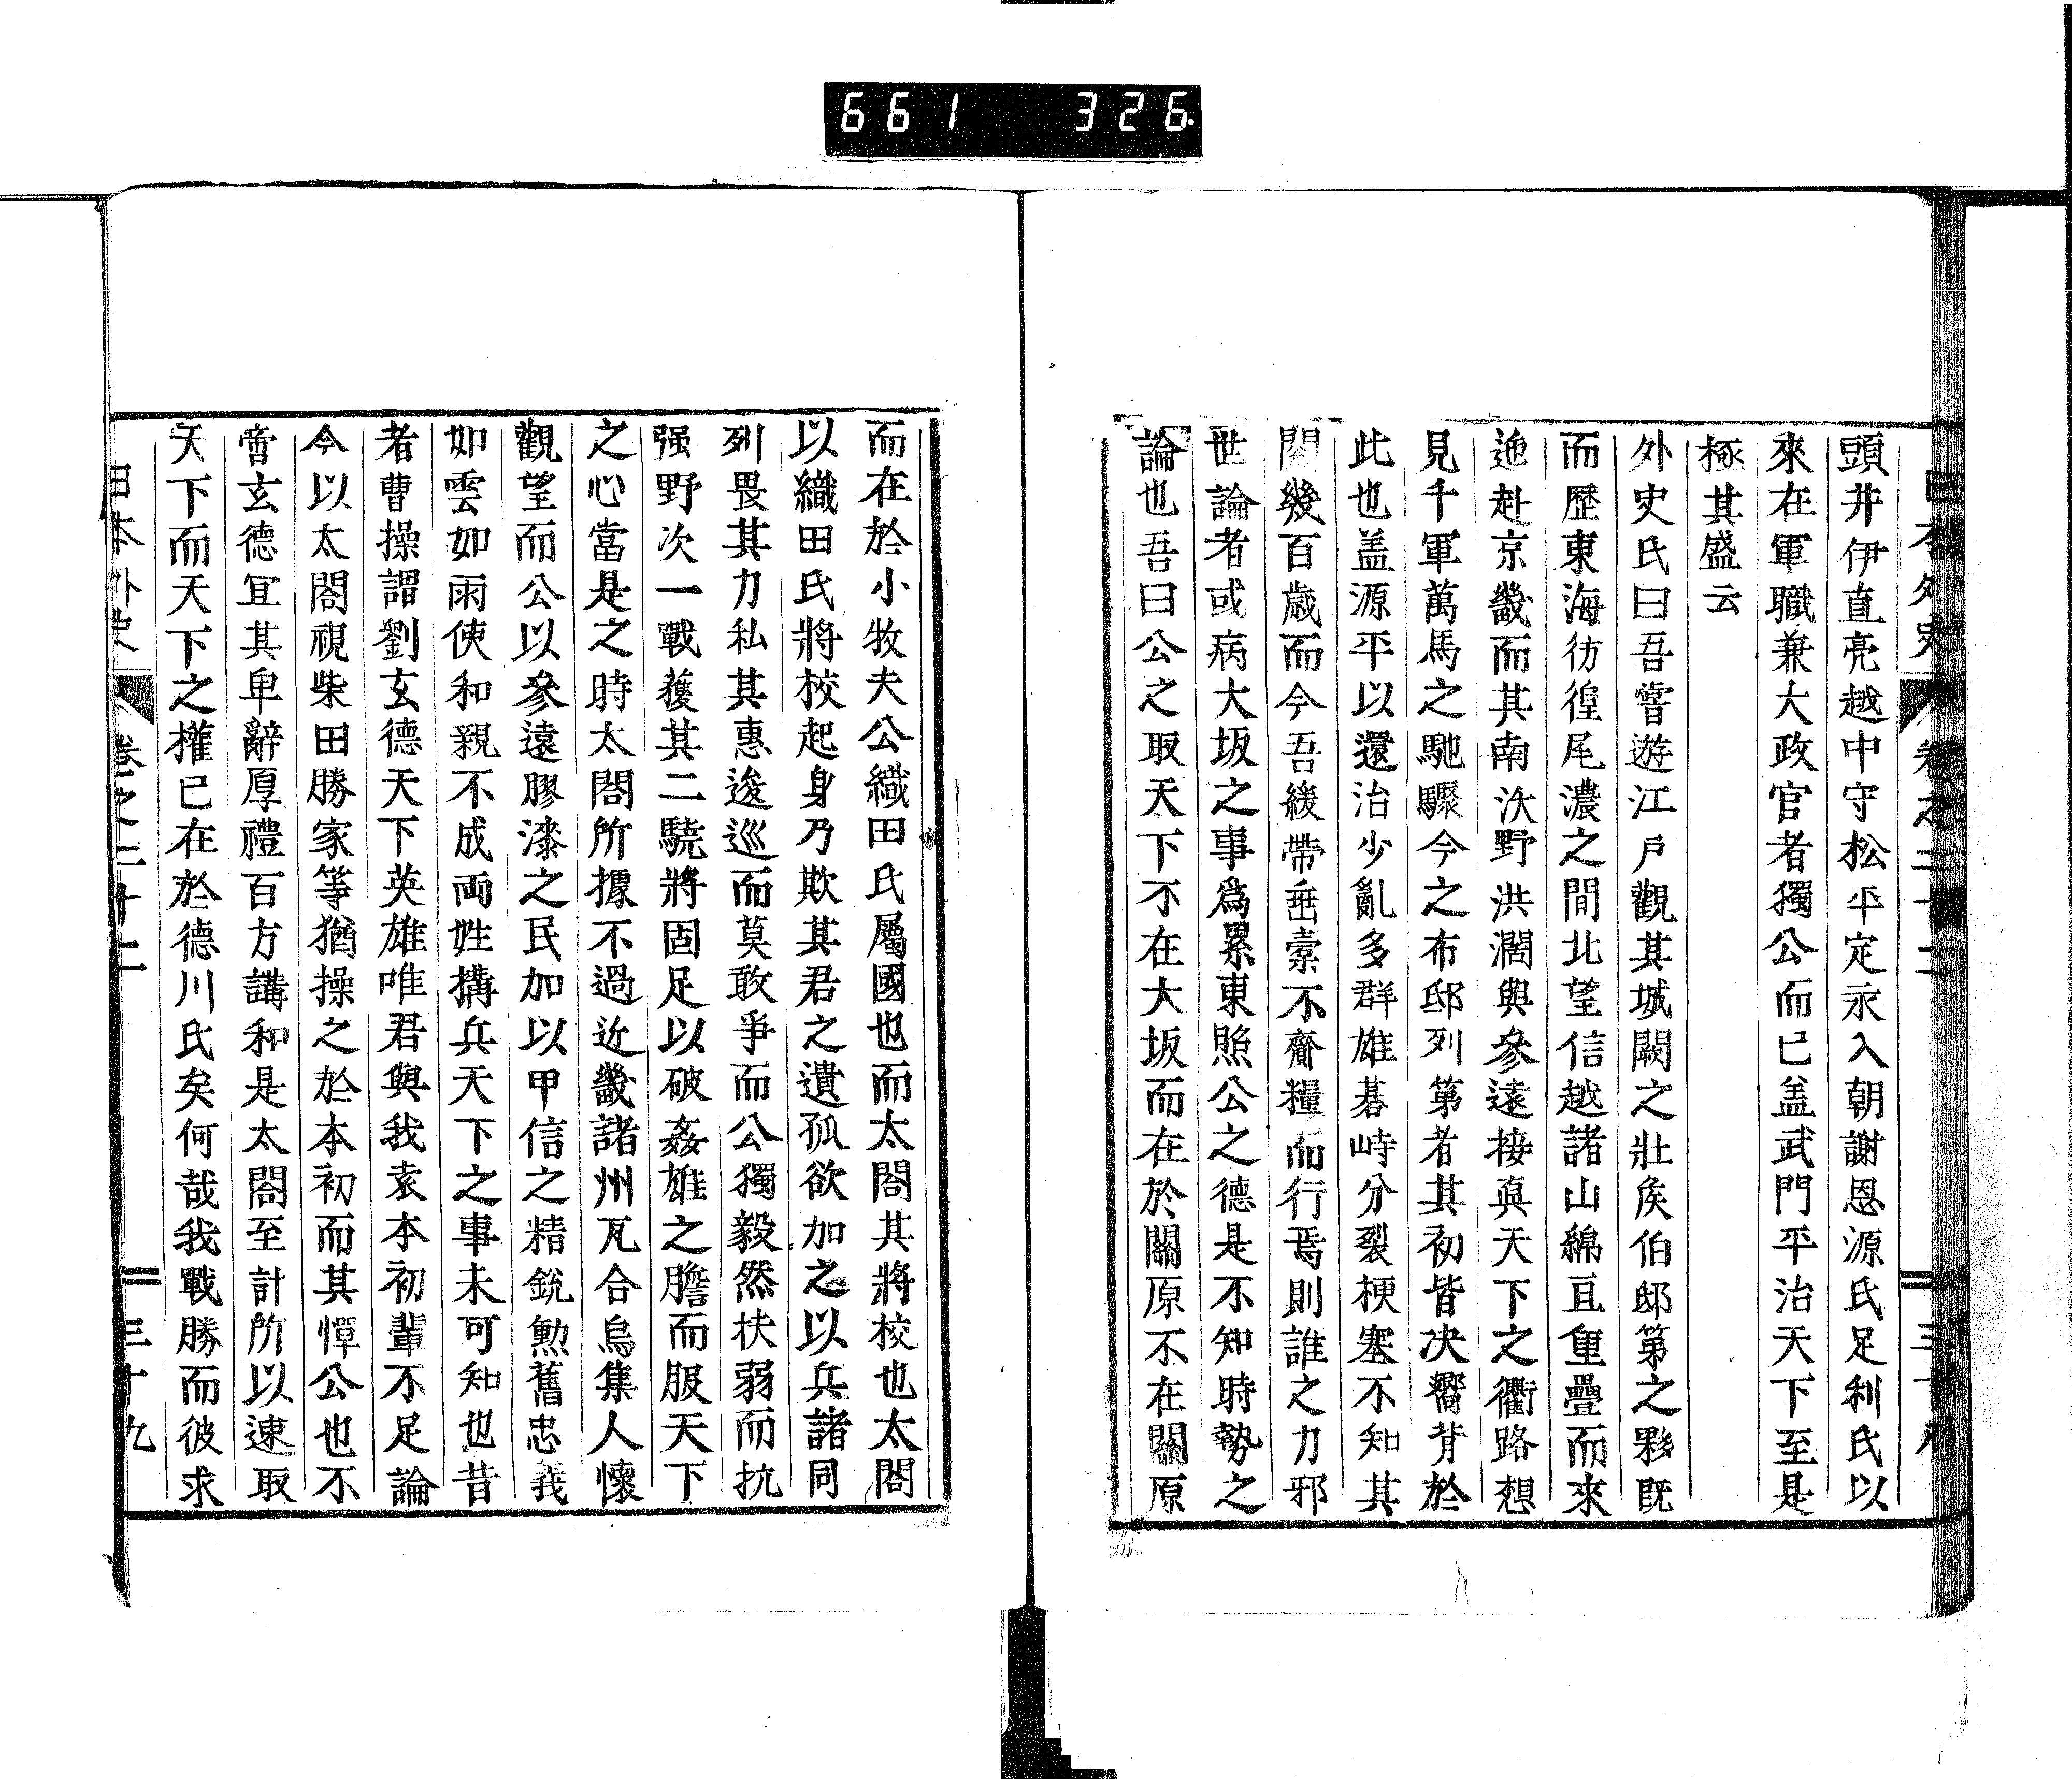 661 326
日本外史 卷之二十二 三十八
頭井伊直亮越中守松平定永入朝謝恩源氏足利氏以
來在軍職兼大政官者獨公而已盖武門平治天下至是
極其盛云
外史氏曰吾嘗遊江戶觀其城闕之壯矦伯邸第之夥旣
而歷東海彷徨尾濃之間北望信越諸山綿亘重疊而來
迤赴京畿而其南沃野洪濶與參遠接眞天下之衢路想
見千軍萬馬之馳驟今之布邸列第者其初皆决嚮背於
此也盖源平以還治少亂多群雄碁峙分裂梗塞不知其
閱幾百歲而今吾緩帶垂橐不齎糧而行焉則誰之力邪
世論者或病大坂之事爲累東照公之德是不知時勢之
論也吾曰公之取天下不在大坂而在於關原不在關原
而在於小牧夫公織田氏屬國也而太閤其將校也太閤
以織田氏將校起身乃欺其君之遺孤欲加之以兵諸同
列畏其力私其惠逡巡而莫敢爭而公獨毅然扶弱而抗
强野次一戰獲其二驍將固足以破姦雄之膽而服天下
之心當是之時太閤所據不過近畿諸州瓦合烏集人懷
觀望而公以參遠膠漆之民加以甲信之精銳勲舊忠義
如雲如雨使和親不成両姓搆兵天下之事未可知也昔
者曹操謂劉玄德天下英雄唯君與我袁本初輩不足論
今以太閤視柴田勝家等猶操之於本初而其憚公也不
啻玄德冝其卑辭厚禮百方講和是太閤至計所以速取
天下而天下之權已在於德川氏矣何哉我戰勝而彼求
日本外史 卷之二十二 三十九